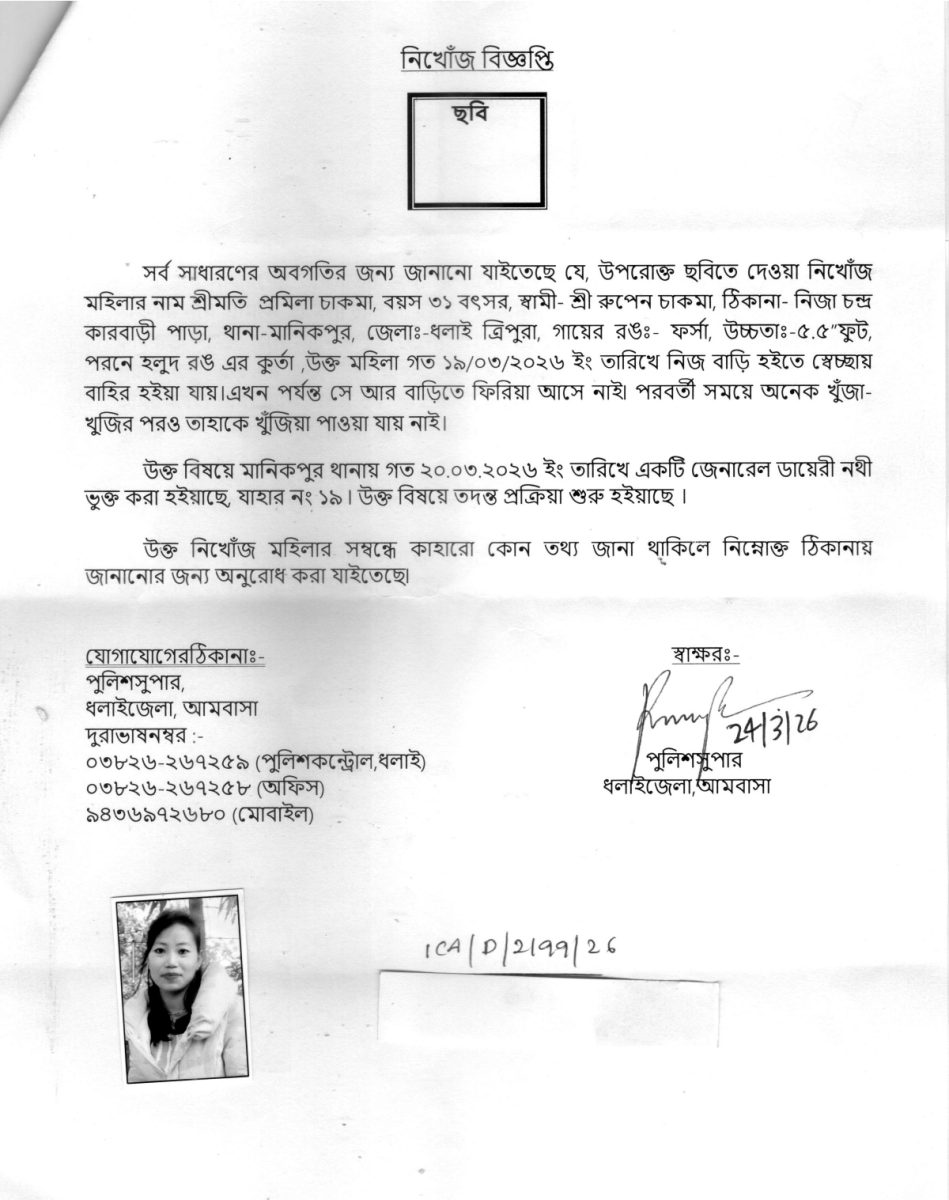 নিখোঁজ বিজ্ঞপ্তি
ছবি
সর্ব সাধারণের অবগতির জন্য জানানো যাইতেছে যে, উপরোক্ত ছবিতে দেওয়া নিখোঁজ
মহিলার নাম শ্রীমতি প্রমিলা চাকমা, বয়স ৩১ বৎসর, স্বামী- শ্রী রুপেন চাকমা, ঠিকানা- নিজা চন্দ্র
কারবাড়ী পাড়া, থানা-মানিকপুর, জেলাঃ-ধলাই ত্রিপুরা, গায়ের রঙঃ- ফর্সা, উচ্চতাঃ-৫.৫"ফুট,
পরনে হলুদ রঙ এর কুর্তা ,উক্ত মহিলা গত ১৯/০৩/২০২৬ ইং তারিখে নিজ বাড়ি হইতে স্বেচ্ছায়
বাহির হইয়া যায়।এখন পর্যন্ত সে আর বাড়িতে ফিরিয়া আসে নাই। পরবর্তী সময়ে অনেক খুঁজা-
খুজির পরও তাহাকে খুঁজিয়া পাওয়া যায় নাই।
উক্ত বিষয়ে মানিকপুর থানায় গত ২০.০৩.২০২৬ ইং তারিখে একটি জেনারেল ডায়েরী নথী
ভুক্ত করা হইয়াছে, যাহার নং ১৯। উক্ত বিষয়ে তদন্ত প্রক্রিয়া শুরু হইয়াছে ।
উক্ত নিখোঁজ মহিলার সম্বন্ধে কাহারো কোন তথ্য জানা থাকিলে নিম্নোক্ত ঠিকানায়
জানানোর জন্য অনুরোধ করা যাইতেছে।
যোগাযোগেরঠিকানাঃ-
পুলিশসুপার,
ধলাইজেলা, আমবাসা
দুরাভাষনম্বর :-
০৩৮২৬-২৬৭২৫৯ (পুলিশকন্ট্রোল,ধলাই)
০৩৮২৬-২৬৭২৫৮ (অফিস)
৯৪৩৬৯৭২৬৮০ (মোবাইল)
স্বাক্ষরঃ-
24/3/26
পুলিশসুপার
ধলাইজেলা,আমবাসা
ICA/D/2199/26